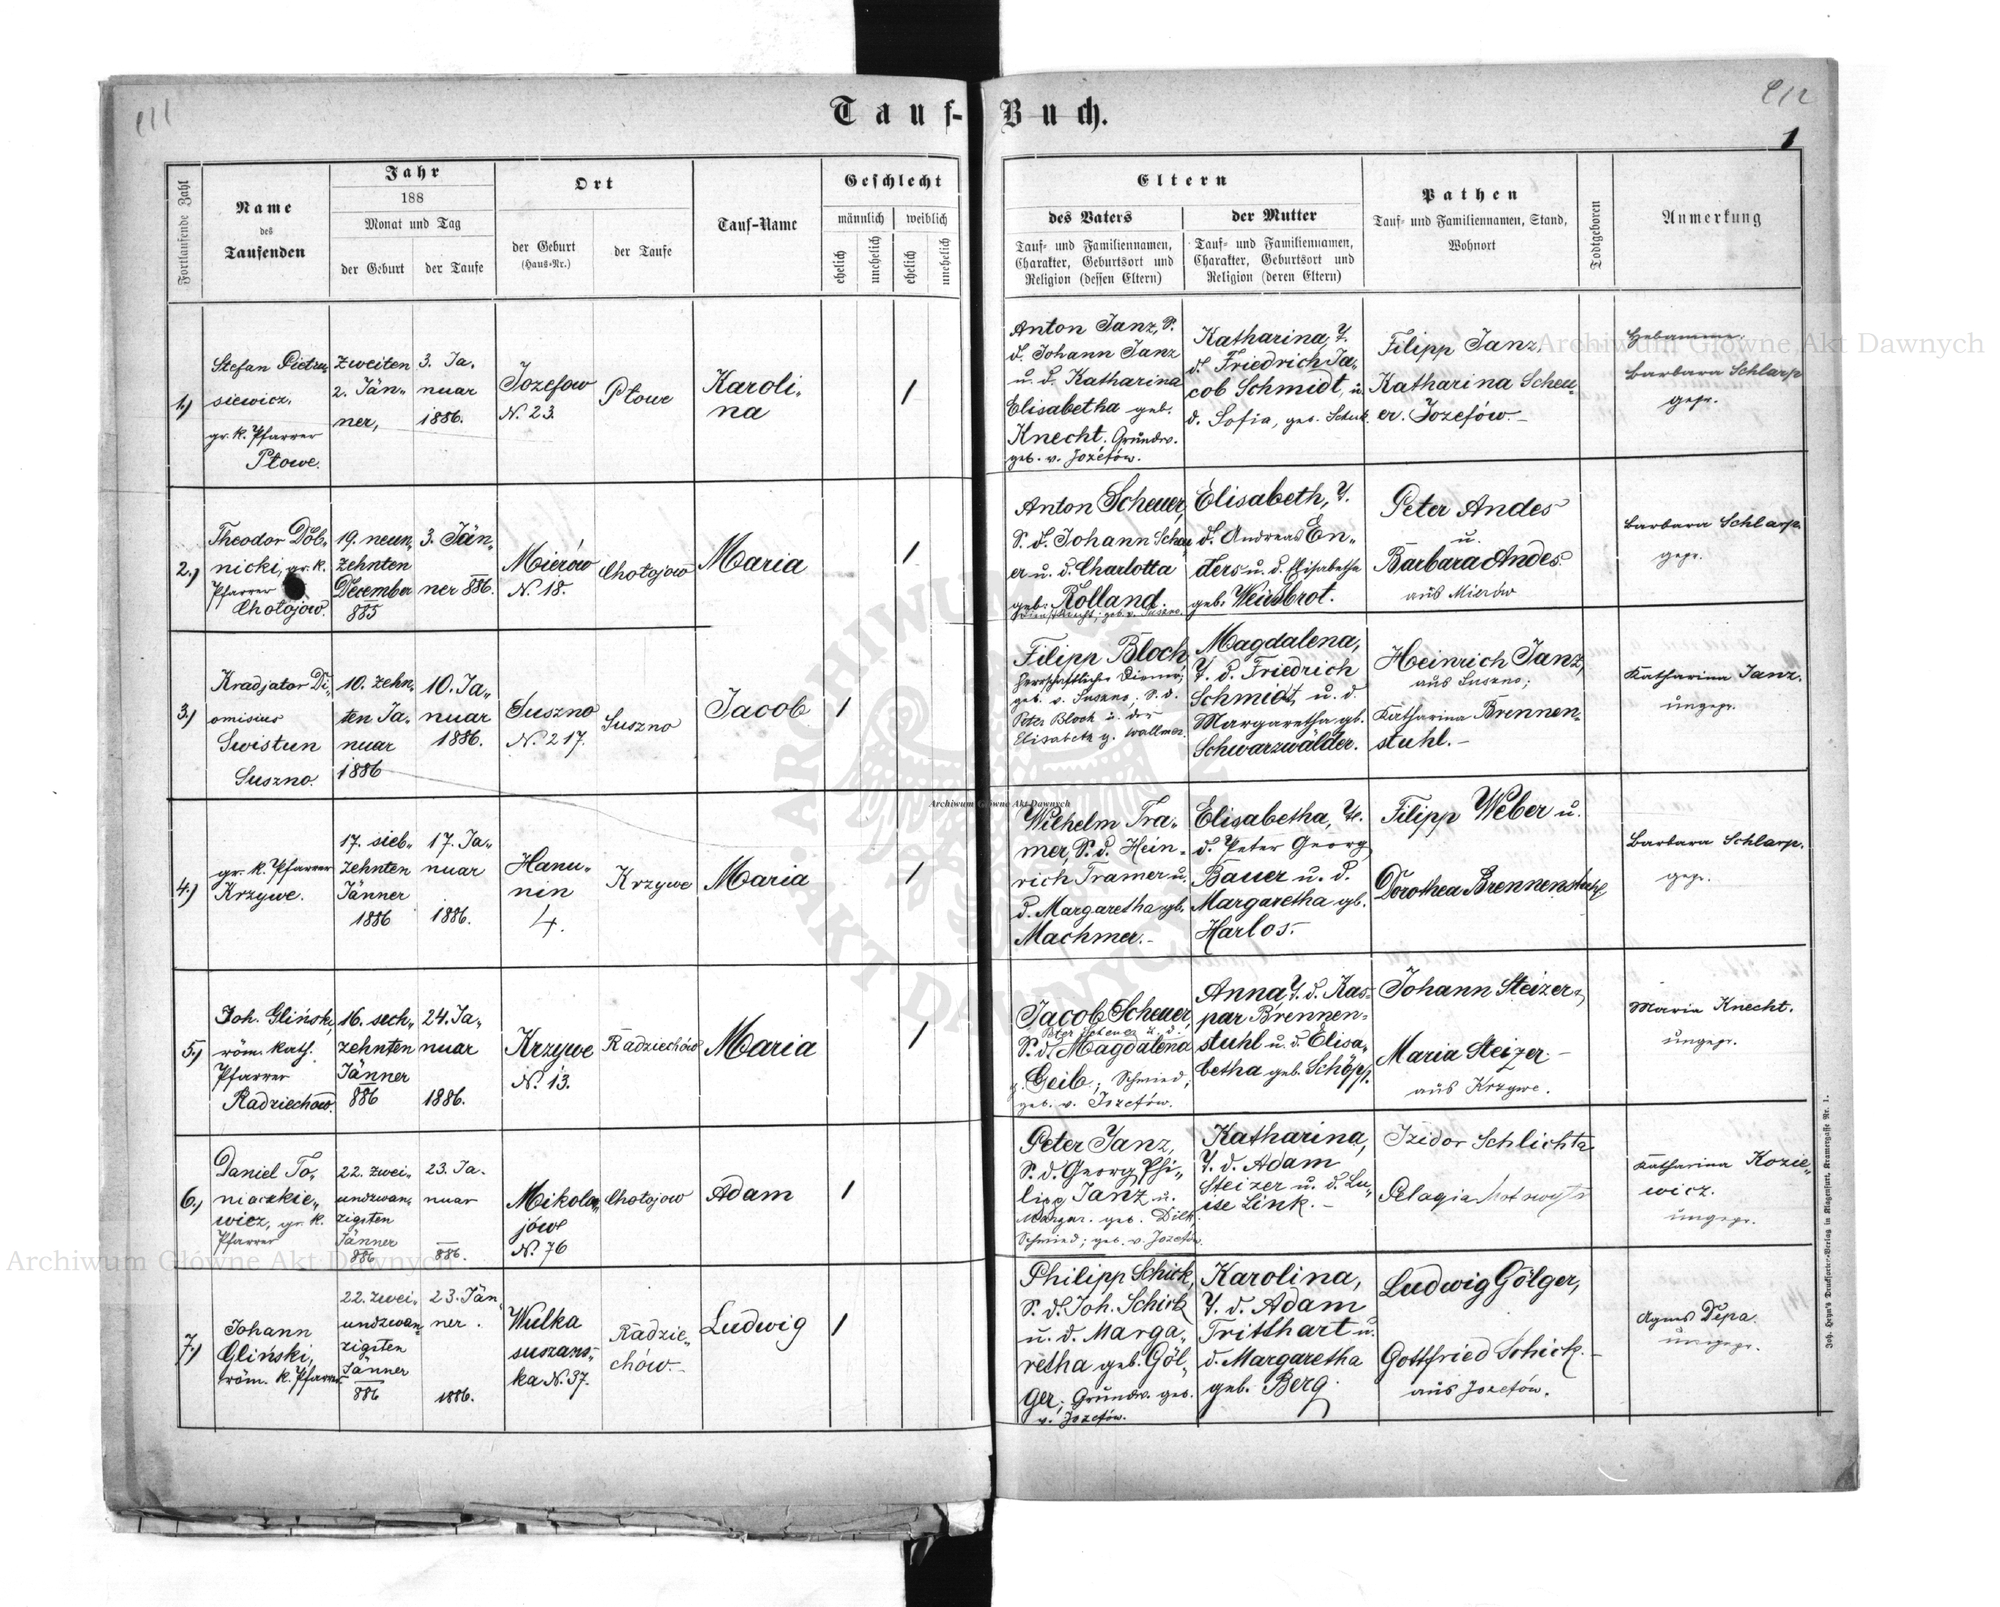 Tauf-Buch.
1
Fortlaufende Zahl
Name
des
Taufenden
Jahr
188
Monat und Tag
der Geburt
der Taufe
Ort
der Geburt
(Haus-Nr.)
der Taufe
Tauf-Name
Geschlecht
männlich
weiblich
ehelich
unehelich
ehelich
unehelich
Eltern
des Vaters
Tauf- und Familiennamen,
Charakter, Geburtsort und
Religion (dessen Eltern)
der Mutter
Tauf- und Familiennamen,
Charakter, Geburtsort und
Religion (deren Eltern)
Pathen
Tauf- und Familiennamen, Stand,
Wohnort
Todtgeboren
Anmerkung
1.)
Stefan Pietru-
siewicz,
gr. k. Pfarrer
Płowe.
zweiten
2. Jän-
ner,
3. Ja-
nuar
1886.
Jozefow
N. 23.
Płowe
Karoli-
na
1
Anton Janz, S.
d. Johann Janz
u. d. Katharina
Elisabetha geb.
Knecht. Grundw.
geb. v. Jozefów.
Katharina, T.
d. Friedrich Ja-
cob Schmidt, u.
d. Sofia, geb.
Filipp Janz,
Katharina Scheu-
er. Jozefów.-
Hebamme.
Barbara Schlarp
gepr.
2.)
Theodor Dob-
nicki, gr. k.
Pfarrer
Chołojow.
19. neun-
zehnten
December
885
3. Jän-
ner 886.
Mierów
N. 18.
Chołojow
Maria
1
Anton Scheuer,
S. d. Johann Scheu-
er u. d. Charlotta
geb. Rolland.
Dienstknecht, geb. v. Suszno.
Elisabeth, T.
d. Andreas En-
ders u. d. Elisabetha
geb. Weissbrot.
Peter Andes
u.
Barbara Andes
aus Mierów
Barbara Schlarp.
gepr.
3.)
Kradjator Di-
omisius
Swistun
Suszno.
10. zehn-
ten Ja-
nuar
1886
10. Ja-
nuar
1886.
Suszno
N. 217.
Suszno
Jacob
1
Filipp Bloch
herrschaftlicher Diener,
geb. v. Suszno, S. d.
Peter Bloch u. der
Elisabeth g. Wallmer.
Magdalena,
T. d. Friedrich
Schmidt, u. d.
Margaretha gb.
Schwarzwälder.
Heinrich Janz,
aus Suszno;
Katharina Brennen-
stuhl.-
Katharina Janz.
ungepr.
4.)
gr. k. Pfarrer
Krzywe.
17. sieb-
zehnten
Jänner
1886
17. Ja-
nuar
1886.
Hanu-
nin
4.
Krzywe
Maria
1
Wilhelm Tra-
mer, S. d. Hein-
rich Tramer u.
d. Margaretha gb.
Machmer.-
Elisabetha, T.
d. Peter Georg
Bauer u. d.
Margaretha gb.
Harlos.-
Filipp Weber u.
Dorothea Brennenstuhl
Barbara Schlarp.
gepr.
5.)
Joh. Gliński,
röm. kath.
Pfarrer
Radziechów.
16. sech-
zehnten
Jänner
886
24. Ja-
nuar
1886.
Krzywe
N. 13.
Radziechów
Maria
1
Jacob Scheuer,
Peter Scheuer u. d.
S. d. Magdalena
g. Geib; Schmied;
geb. v. Jozefów.
Anna, T. d. Kas-
par Brennen-
stuhl u. d. Elisa-
betha geb. Schöpp.
Johann Steizer,
Maria Steizer.-
aus Krzywe.
Maria Knecht.
ungepr.
6.)
Daniel To-
niaczkie-
wicz, gr. k.
Pfarrer
22. zwei-
undzwan-
zigsten
Jänner
886
23. Ja-
nuar
886.
Mikola-
jów
N. 76
Chołojow
Adam
1
Peter Janz,
S. d. Georg Phi-
lipp Janz u.
Margar. geb. Dilk,
Schmied; geb. v. Jozefów.
Katharina,
T. d. Adam
Steizer u. d. Lu-
ise Link.-
Izidor Schlichta
Pelagia
Katharina Kozie-
wicz.
ungepr.
7.)
Johann
Gliński,
röm. k. Pfarrer
22. zwei-
undzwan-
zigsten
Jänner
886
23. Jän-
ner.
1886.
Wulka
suszans-
ka N. 37.
Radzie-
chów-
Ludwig
1
Philipp Schick,
S. d. Joh. Schick
u. d. Marga-
retha geb. Göl-
ger; Grundw. geb.
v. Jozefów.
Karolina,
T. d. Adam
Tritthart u.
d. Margaretha
geb. Berg.
Ludwig Gölger,
Gottfried Schick.-
aus Jozefów.
Agnes Depa.
ungepr.
Joh. Heyn's Druckforten-Verlag in Klagenfurt, Kramergasse Nr. 1.
Archiwum Główne Akt Dawnych
Archiwum Główne Akt Dawnych
Archiwum Główne Akt Dawnych
ARCHIWUM GŁÓWNE AKT DAWNYCH